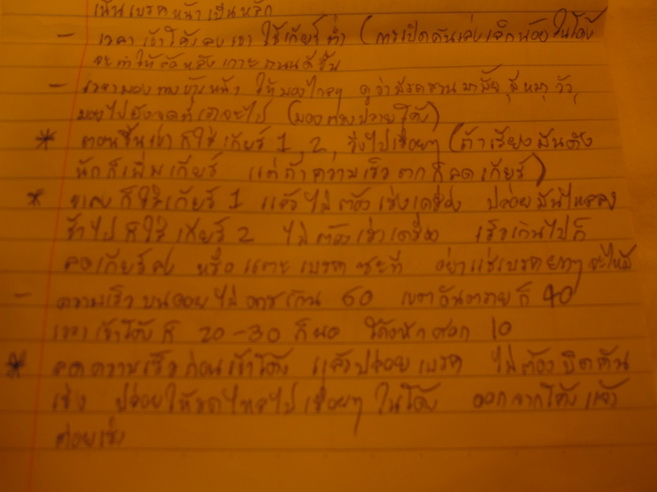 เน้นเบรคหน้าเป็นหลัก
- เวลาเข้าโค้งลงเขา ใช้เกียร์ต่ำ (การเปิดคันเร่งเล็กน้อยในโค้ง
จะทำให้ล้อหลังเกาะถนนดีขึ้น
- เวลามองทางข้างหน้า ให้มองไกลๆ ดูว่ามีรถสวนมามั้ย มีหมา วัว
มองไปยังจุดที่เราจะไป (มองตรงปลายโค้ง)
* ตอนขึ้นเขาก็ใช้เกียร์ 1, 2, วิ่งไปเรื่อยๆ (ถ้าเสียงมันดัง
นักก็เพิ่มเกียร์ แต่ถ้าความเร็วตกก็ลดเกียร์)
* ลงก็ใช้เกียร์ 1 แล้วไม่ต้องเร่งเครื่อง ปล่อยมันไหลลง
ช้าไปก็ใช้เกียร์ 2 ไม่ต้องเร่งเครื่อง เร็วเกินไปก็
ลดเกียร์ลง หรือแตะเบรคซะที อย่าแช่เบรคยาวๆ จะไหม้
- ความเร็วบนดอยไม่ควรเกิน 60 เขตอันตรายก็ 40
เวลาเข้าโค้งก็ 20-30 ก็พอ โค้งหักศอก 10
* ลดความเร็วก่อนเข้าโค้ง แล้วปล่อยเบรค ไม่ต้องบิดคัน
เร่ง ปล่อยให้รถไหลไปเรื่อยๆ ในโค้ง ออกจากโค้งแล้ว
ค่อยเร่ง